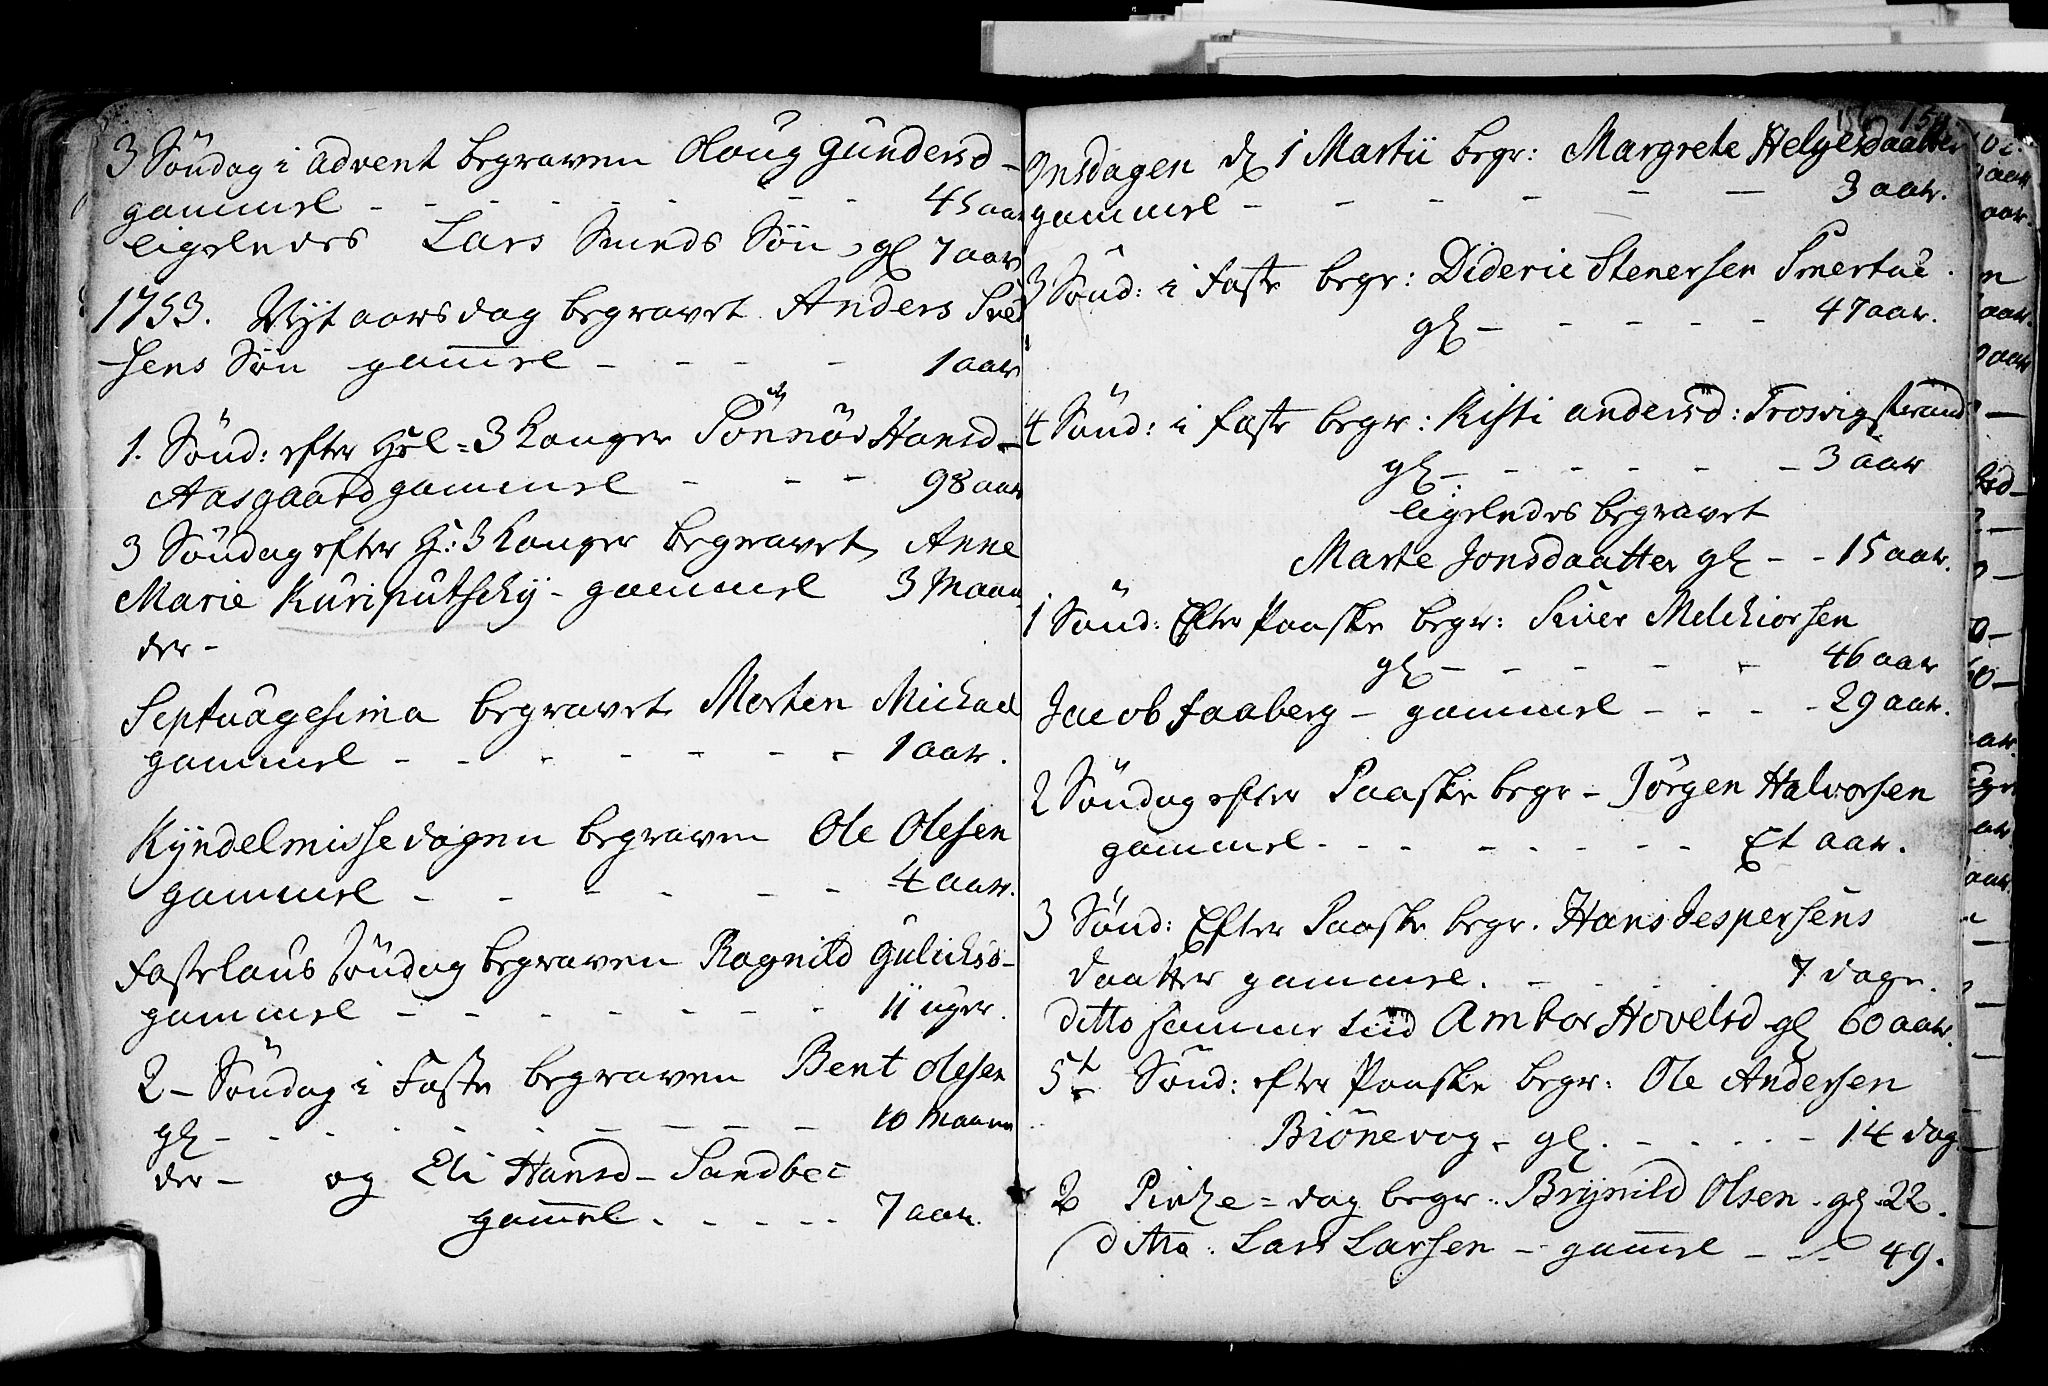 3 Söndag i advent begraven Oloug Gundersd-
gammel - - - - - - - 45 aar
ligeledes Lars Smeds Sön, gl 7 aar
1753. Nyt aarsdag begravet Anders
sens Sön gamel - - - - 1 aar
1. Sönd: efter Hel=3 Konger Tönnös Hansd-
Aasgaard gammel - - - 98 aar
3 Söndag efter H: 3 Konger begravet Anne
Marie - gammel 3 Maan
der-
Septuagesima begravet Morten Michael
gammel - - - - - - - 1 aar.
Kyndelmissedagen begraven Ole Olesen
gammel - - - - - - 4 aar.
Fastelaus Söndag begraven Ragnild Gulichs-
gammel - - - - - - - 11 uger.
2- Söndag i Faste begraven Bent Olesen
gl - - - - - - - - - 10 Maan
der- og Eli Hansd- Sandbec
gamel . - - - - 7 aar.
156 154
Onsdagen d 1 Martii begr: Margrete Helgesdaatter
gammel - - - - - - 3 aar.
3 Sönd: i Faste begr: Dideric Stenersen
gl - - - - - 47 aar.
4 Sönd: i faste begr: Kisti andersd: Trosvigstrand
gl - - - - - - 3 aar
ligeledes begravet
Marte Jonsdaatter gl - - 15 aar.
1 Sönd: Efter Paaske begr: Siver Melchiorsen
gl - - - - - - 46 aar
Jacob faaberg - gammel - - - - 29 aar.
2 Söndag efter Paaske begr - Jörgen Halvorsen
gammel - - - - - - - - Et aar.
3 Sönd: Efter Paaske begr. Hans Jespersens
daatter gammel. - - - - 7 dage.
ditto samme tiid Ambor Hovelsd gl 60 aar.
5t Sönd: efter Paaske begr: Ole Andersen
Biönevog - gl . - - - - 14 dag
2 Pintze=dag begr: Brynild Olsen - gl 22.
ditto: Lars Larsen - gamel - - - 49.